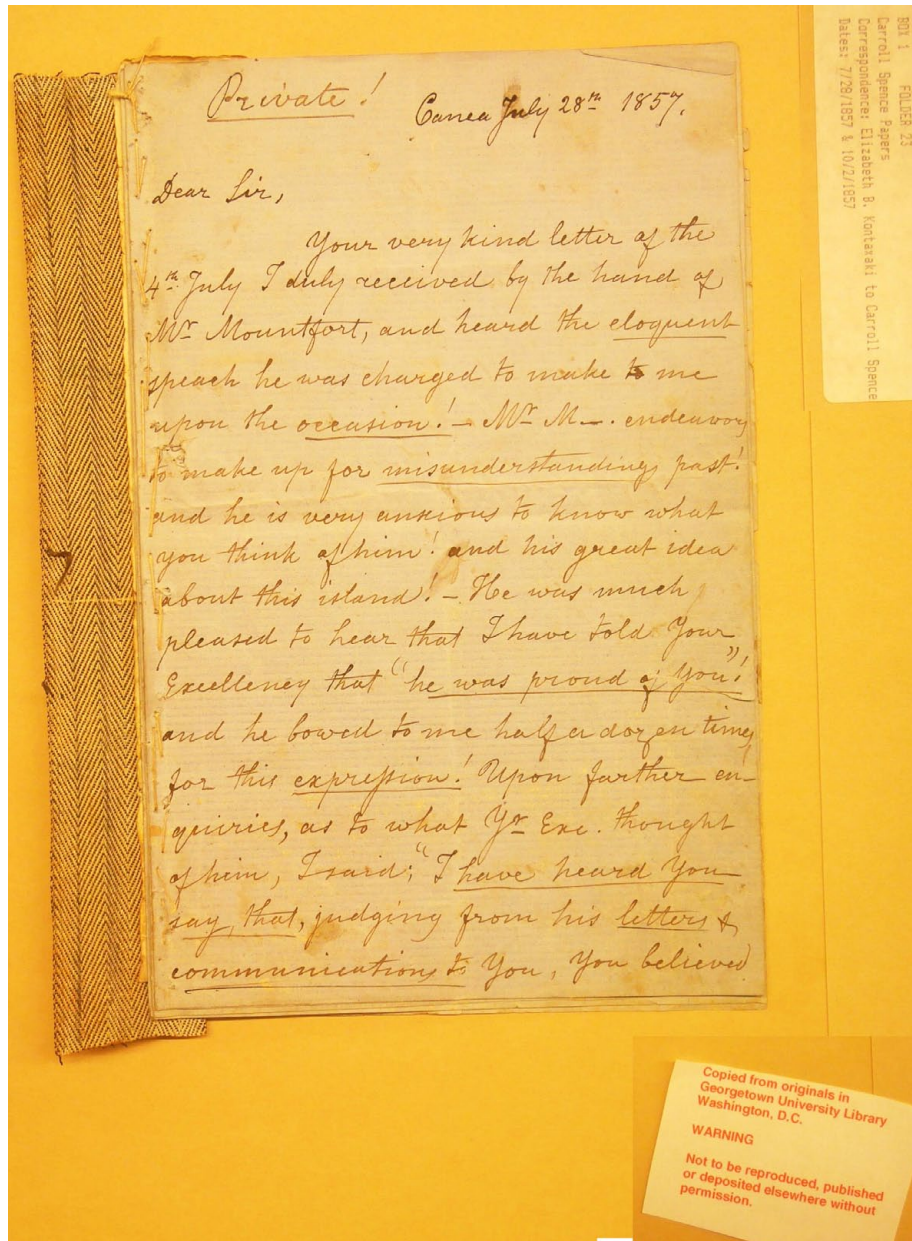 Private!
Canea July 28th 1857.
Dear Sir,
Your very kind letter of the
4th July I duly received by the hand of
Mr Mountfort, and heard the eloquent
speach he was charged to make to me
upon the occasion! — Mr M—. endeavors
to make up for misunderstandings past!
and he is very anxious to know what
you think of him! and his great idea
about this island! — He was much
pleased to hear that I have told Your
Excellency that "he was proud of You"!
and he bowed to me half a dozen times
for this expression! Upon farther en-
quiries, as to what Yr Exc. thought
of him, I said; "I have heard You
say, that, judging from his letters &
communications to You, You believed
BOX 1 FOLDER 23
Carroll Spence Papers
Correspondence: Elizabeth B. Kontaxaki to Carroll Spence
Dates: 7/28/1857 & 10/2/1857
Copied from originals in
Georgetown University Library
Washington, D.C.
WARNING
Not to be reproduced, published
or deposited elsewhere without
permission.